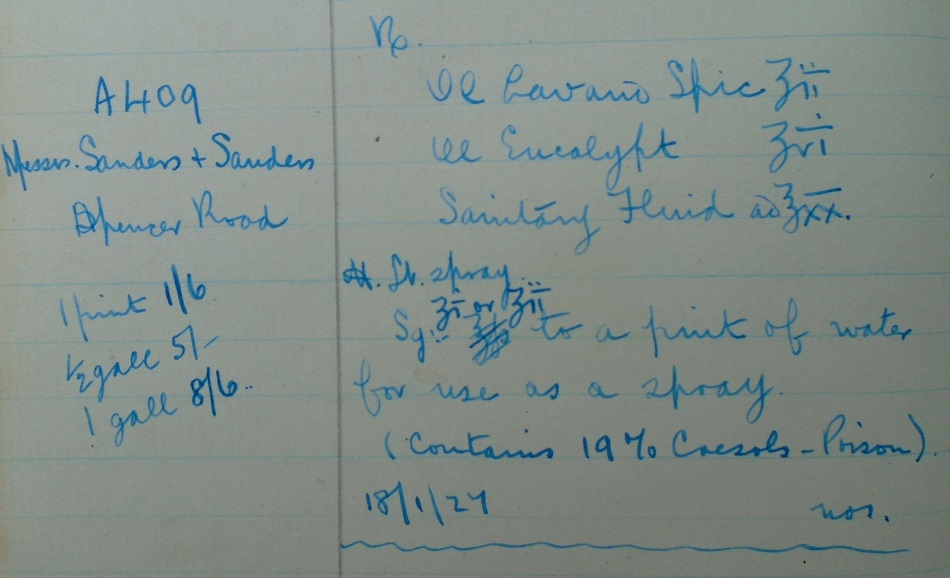 A409
Messrs. Sanders + Sanders
Spencer Road
1 pint 1/6
½ gall 5/-
1 gall 8/6.
Rx.
Ol Lavand Spic ʒii
Ol Eucalypt ʒvi
Sanitary Fluid ad ℥xx.
Ft. spray.
Sig: ʒi or ʒii to a pint of water
for use as a spray.
(Contains 19% Cresols - Poison).
18/1/27